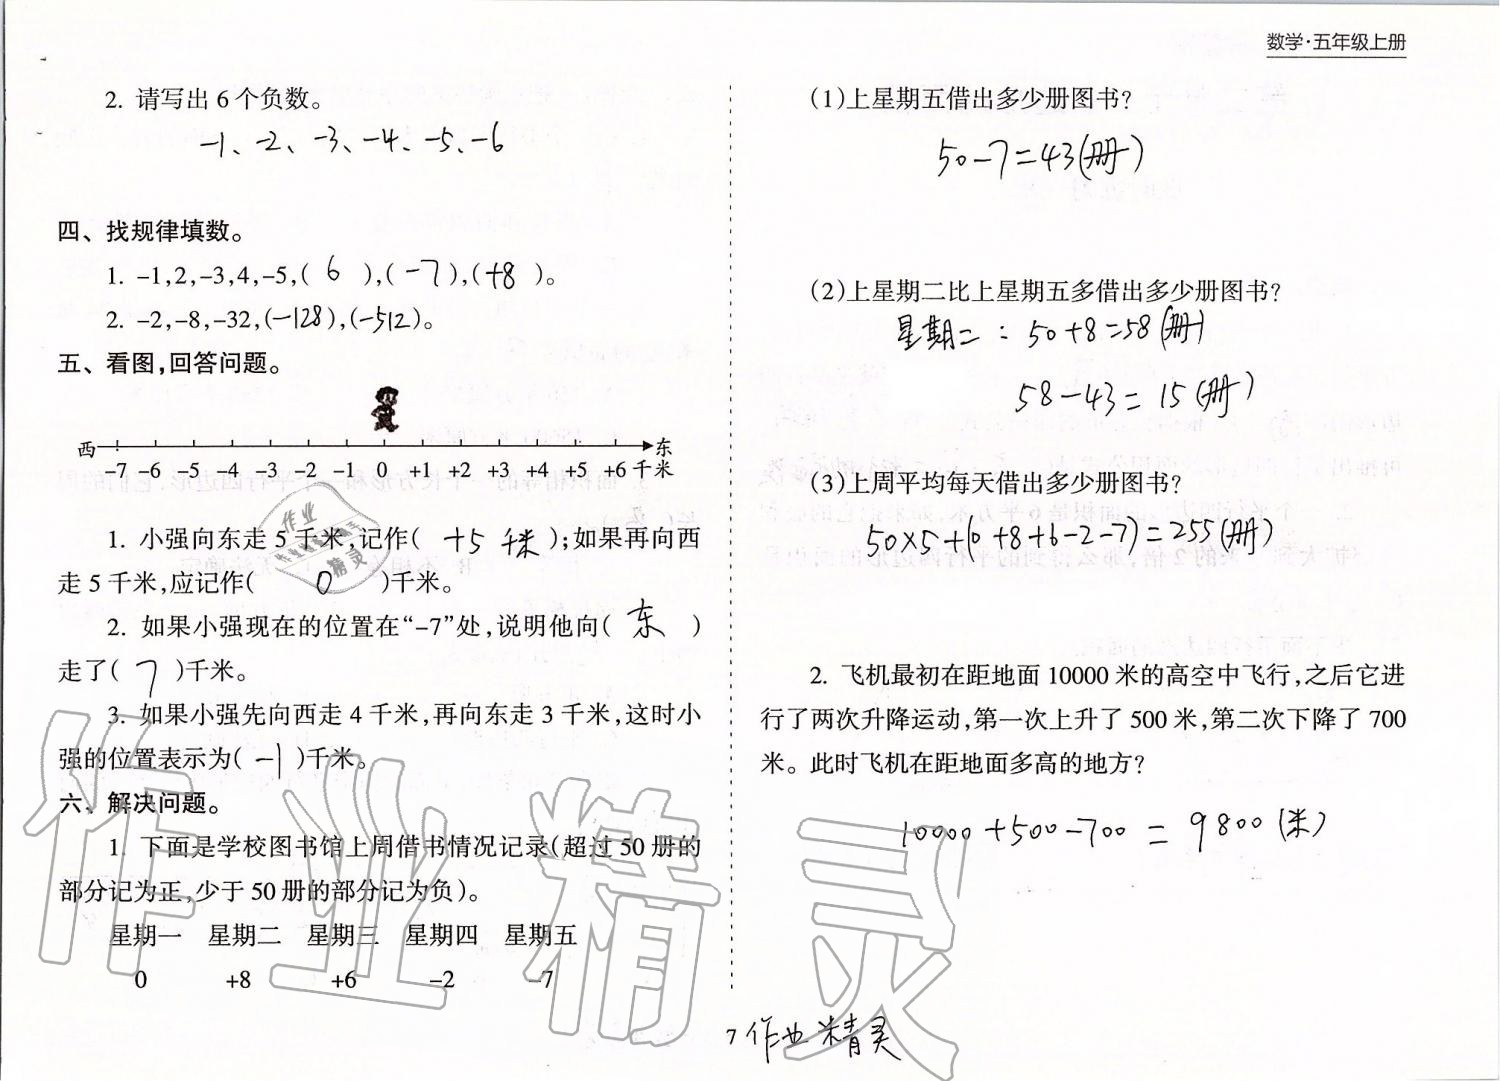 数学·五年级上册
2. 请写出6个负数。
-1、-2、-3、-4、-5、-6
四、找规律填数。
1. -1,2,-3,4,-5,( 6 ),( -7 ),( +8 )。
2. -2,-8,-32,(-128),(-512)。
五、看图,回答问题。
西 东
-7 -6 -5 -4 -3 -2 -1 0 +1 +2 +3 +4 +5 +6 千米
1. 小强向东走5千米,记作( +5千米 );如果再向西
走5千米,应记作( 0 )千米。
2. 如果小强现在的位置在“-7”处,说明他向( 东 )
走了( 7 )千米。
3. 如果小强先向西走4千米,再向东走3千米,这时小
强的位置表示为( -1 )千米。
六、解决问题。
1. 下面是学校图书馆上周借书情况记录(超过50册的
部分记为正,少于50册的部分记为负)。
星期一 星期二 星期三 星期四 星期五
0 +8 +6 -2 -7
(1)上星期五借出多少册图书?
50-7=43(册)
(2)上星期二比上星期五多借出多少册图书?
星期二：50+8=58(册)
58-43=15(册)
(3)上周平均每天借出多少册图书?
50×5+(0+8+6-2-7)=255(册)
2. 飞机最初在距地面10000米的高空中飞行,之后它进
行了两次升降运动,第一次上升了500米,第二次下降了700
米。此时飞机在距地面多高的地方?
10000+500-700=9800(米)
7 作业精灵
作业精灵
作业
精灵